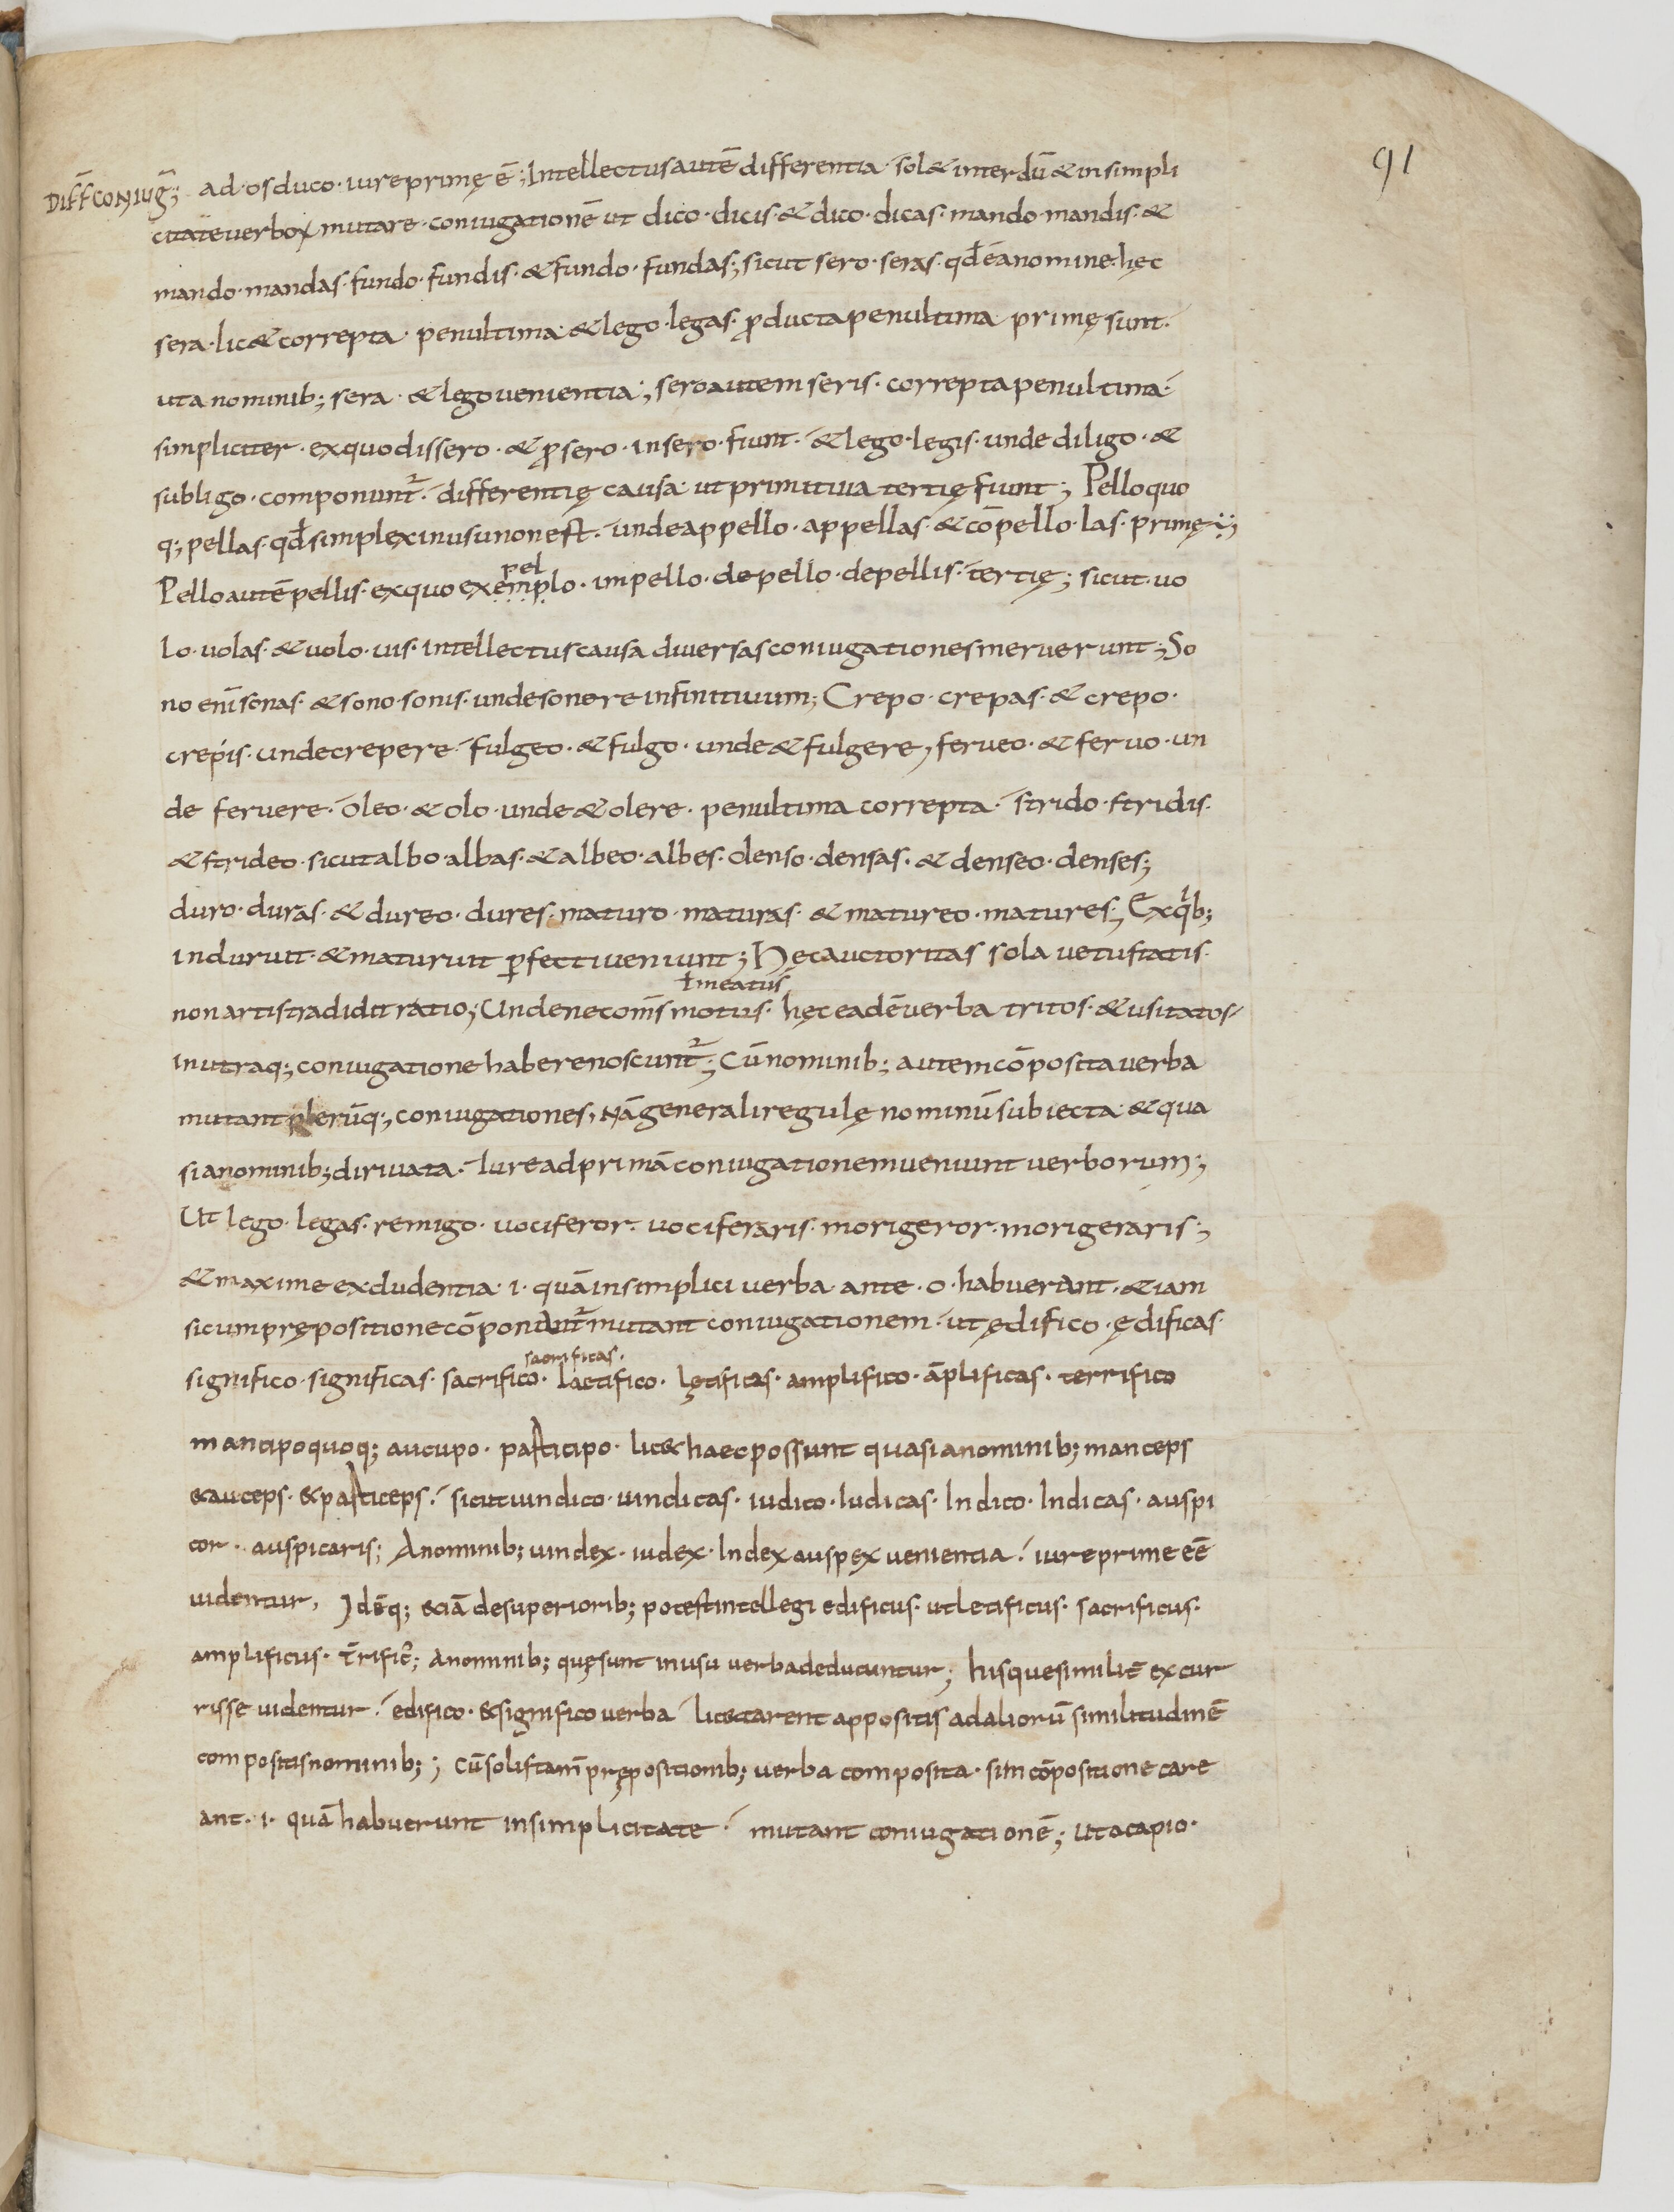 91
DIFF̄CONIUḠ;
ad·osduco·iureprimę ē; Intellectusautē differentia· sol& interdū & insimpli
citateverboꝝ mutare·coniugationē ut dico·dicis·& dico·dicas·mando·mandis·&
mando·mandas·fundo·fundis·&fundo·fundas; sicut sero·seras·qđ ē anomine·hęc
sera·lic& correpta·penultima·& lego·legas·ꝓductapenultima·primę sunt·
utanominib; sera·& legovenientia; seroautem seris·correptapenultima·
simpliciter·exquodissero·& ꝓsero·insero·fiunt·& lego·legis·unde diligo·&
subligo·componunt᷑·differentię causa ut primitiua tertię fiunt; Pelloquo
q; pellas·qđ simplexinusunonest·undeappello·appellas·& cōpello·las·primę;
pel
Pelloautē pellis·exquo exemplo·impello·depello·depellis·tertię; sicut·uo
lo·uolas·& uolo·uis·intellectuscausa diuersasconiugationesmeruerunt; So
no enī sonas·& sono·sonis·undesonere infinitiuum; Crepo·crepas·& crepo·
crepis·undecrepere·fulgeo·& fulgo·unde & fulgere, ferueo·& feruo·un
de fervere·oleo·& olo·unde & olere·penultima correpta·strido·stridis·
& strideo·sicut albo·albas·& albeo·albes·denso·densas·& denseo·denses;
duro·duras·& dureo·dures·maturo·maturas·& matureo·matures; Exqͥb;
induruit·& maturuit ꝑfectiveniunt; Hęcauctoritas sola vetustatis·
ł meatus
nonartistradidit ratio; Undenecom̄s motus·hęc eadē verba tritos·& usitatos
inutraq; coniugatione haberenoscunt᷑; Cū nominib; autem cōpositaverba
mutant plerūq; coniugationes, Nā generaliregulę nominū subiecta & qua
sianominib; diriuata·Iureadprimā coniugationemueniunt verborum;
Ut lego·legas·remigo·uociferor·uociferaris·morigeror·morigeraris;
& maxime excludentia·i·quā insimplici verba·ante·o·habuerant·&iam
sicumprępositionecōponant᷑ mutant coniugationem·ut ędifico·ędificas·
sacrificas·
significo·significas·sacrifico·laetifico·lętificas·amplifico·āplificas·terrifico
mancipoquoq; aucupo·participo·lic& haecpossunt quasianominib; manceps
& auceps·& particeps·sicutuindico·uindicas·iudico·Iudicas·Indico·Indicas·auspi
cor·auspicaris; Anominib; uindex·iudex·Index auspex uenientia·iureprime eē
uidentur, Idēq; &iā desuperiorib; potestintellegi edificus·utletificus·sacrificus·
amplificus·t̄rific᷒; anominib; quęsunt inusu verbadeducuntur; hisquesimilit̄ excur
risse uidentur·edifico·& significo verba lic&carent appositis adaliorū similitudinē
compositisnominib;; cū solis tam̄ prępositionib; verba composita·sīin cōpositione care
ant·i·quā habuerunt insimplicitate·mutant coniugationē; utacapio·